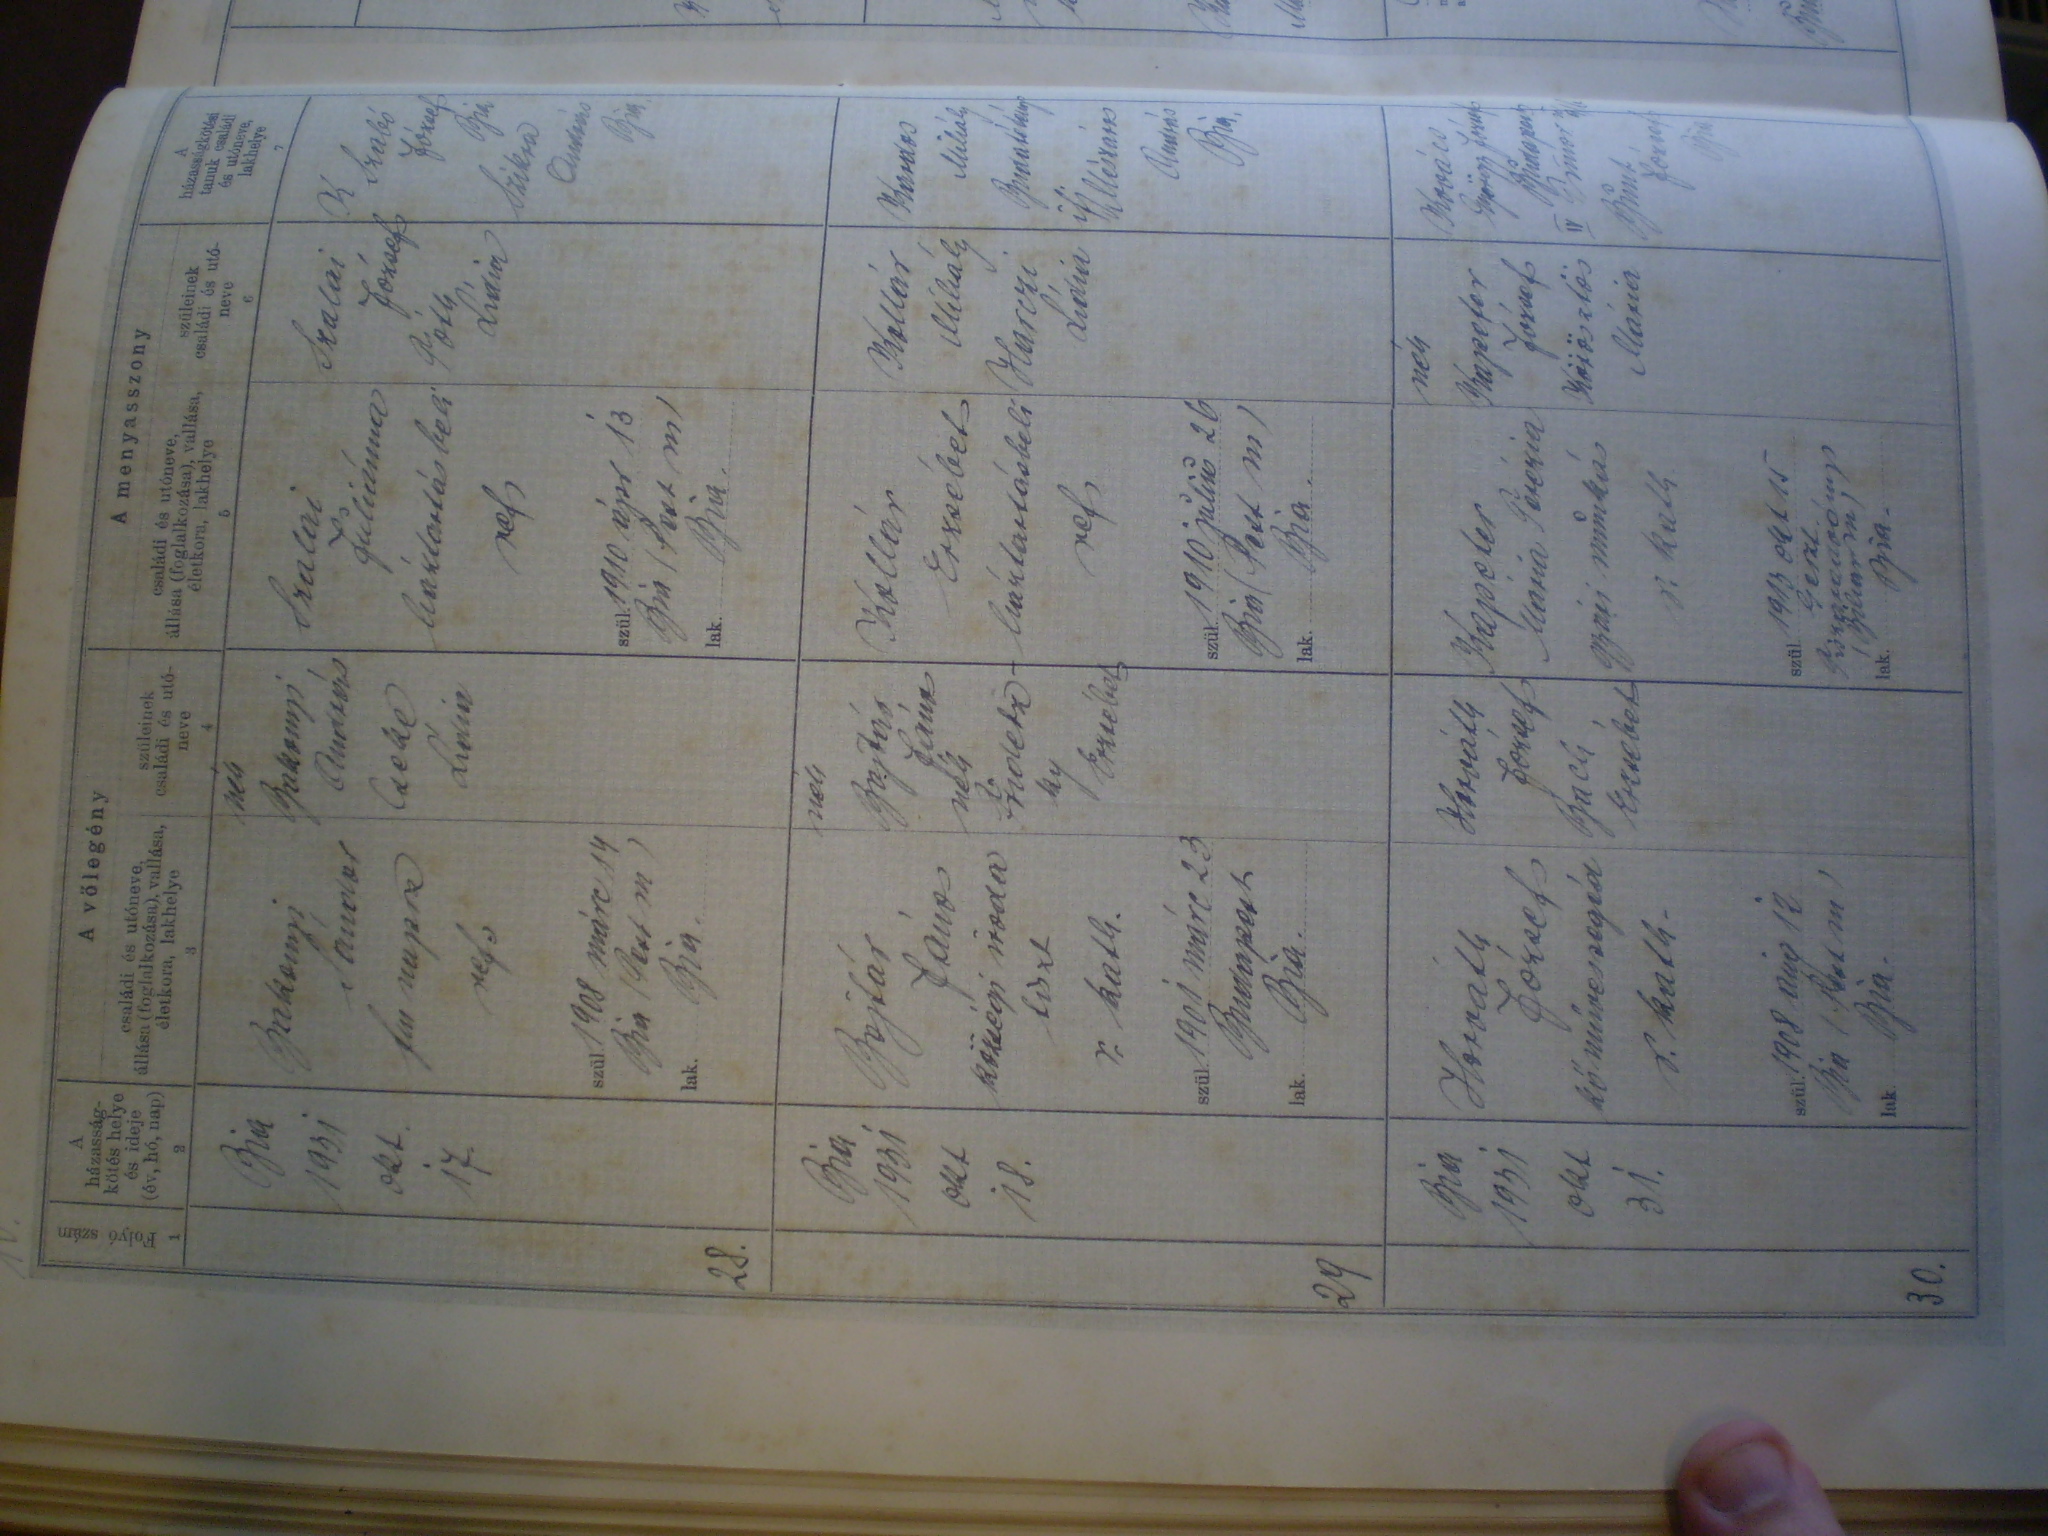 A vőlegény
A menyasszony
Folyó-
szám
1
A
házasság-
kötés helye
és ideje
(év, hó, nap)
2
családi és utóneve,
állása (foglalkozása), vallása,
életkora, lakhelye
3
szüleinek
családi és utó-
neve
4
családi és utóneve,
állása (foglalkozása), vallása,
életkora, lakhelye
5
szüleinek
családi és utó-
neve
6
A
házasságkötési
tanuk családi
és utóneve,
lakhelye
7
28.
Bia
1931
okt.
17.
Bakonyi
Sándor
ref
szül. 1908 márc 14
Bia (Pest m)
lak. Bia.
néh
Bakonyi
András
Cseke
Lidia
Szalai
Juliánna
háztartásbeli
ref
szül. 1910 ápr 13
Bia (Pest m)
lak. Bia.
Szalai
József
Tóth
Lidia
K Szabó
József
Bia
Szikra
András
Bia.
29
Bia
1931
okt
18.
Bojtár
János
községi iroda
tiszt
r. kath.
szül. 1901 márc 23
Budapest
lak. Bia.
néh
Bojtár
János
néh
Erzsébet
Kollár
Erzsébet
háztartásbeli
ref
szül. 1910 július 26
Bia (Pest m)
lak. Bia.
Kollár
Mihály
Harczi
Lidia
Mihály
ifj Mészáros
András
Bia.
30.
Bia
1931
okt
31.
Horváth
József
kőművessegéd
r. kath.
szül. 1908 aug 12
Bia (Pest m)
lak. Bia.
Horváth
József
Bach
Erzsébet
Kapeter
Mária Terézia
gyári munkás
r. kath
szül. 1913 okt 15
lak. Bia.
néh
József
Mária
Kovács
Bálint
József
Bia